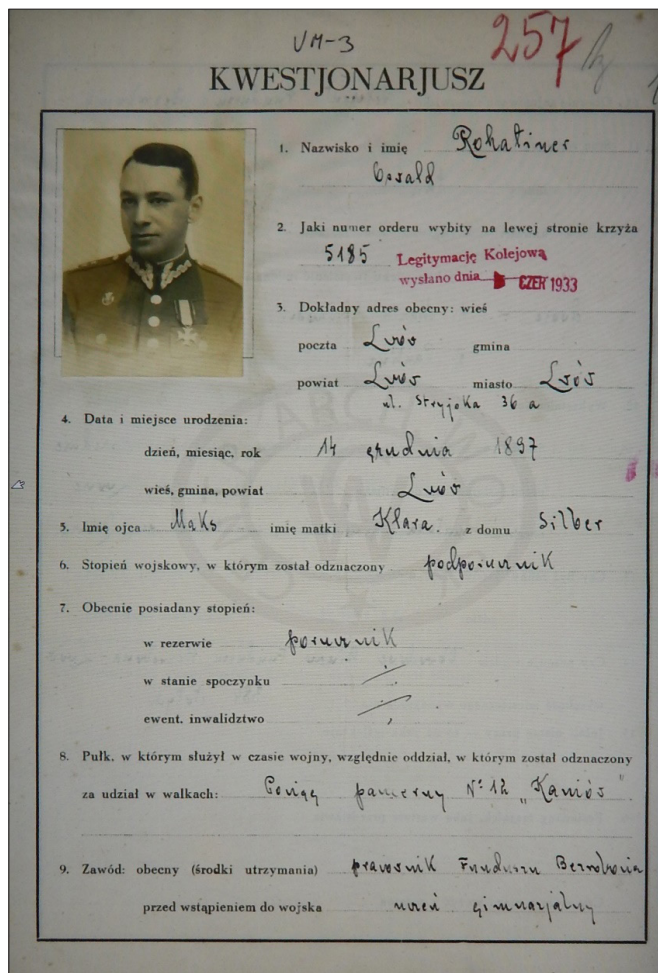 VM-3
257
KWESTJONARJUSZ
1. Nazwisko i imię Rohatiner
Oswald
2. Jaki numer orderu wybity na lewej stronie krzyża
5185 Legitymację Kolejową
wysłano dnia CZER 1933
3. Dokładny adres obecny: wieś
poczta Lwów gmina
powiat Lwów miasto Lwów
ul. Stryjska 36 a
4. Data i miejsce urodzenia:
dzień, miesiąc, rok 14 grudnia 1897
wieś, gmina, powiat Lwów
5. Imię ojca Maks imię matki Klara z domu Silber
6. Stopień wojskowy, w którym został odznaczony podporucznik
7. Obecnie posiadany stopień:
w rezerwie porucznik
w stanie spoczynku
ewent. inwalidztwo
8. Pułk, w którym służył w czasie wojny, względnie oddział, w którym został odznaczony
za udział w walkach: Pociąg pancerny № 12 „Kaniów"
9. Zawód: obecny (środki utrzymania) prawnik Funduszu Bezrobocia
przed wstąpieniem do wojska uczeń gimnazjalny